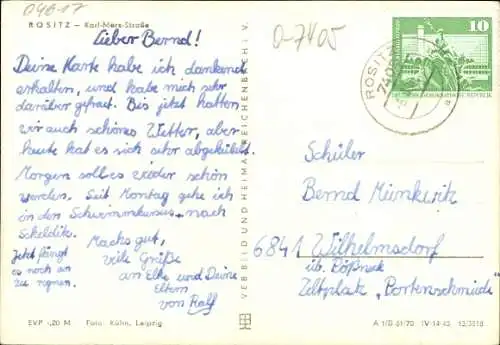 04617
ROSITZ – Karl-Marx-Straße
Lieber Bernd!
Deine Karte habe ich dankend
erhalten, und habe mich sehr
darüber gefreut. Bis jetzt hatten
wir auch schönes Wetter, aber
heute hat es sich sehr abgekühlt.
Morgen soll es wieder schön
werden. Seit Montag gehe ich
in den Schwimmkursus nach
Scheldik.
Machs gut,
viele Grüße
an Elke und Deine
Eltern
von Ralf
Jetzt fängt
es noch an
zu regnen.
EVP -,20 M Foto: Kühn, Leipzig
VERLAG BILD UND HEIMAT REICHENBACH I. V.
O-7405
10
ROSITZ
DEUTSCHE DEMOKRATISCHE REPUBLIK
Schüler
Bernd
6841 Wilhelmsdorf
üb. Pößneck
Zeltplatz "Portenschmiede"
A 1/B 61/70 IV-14-43